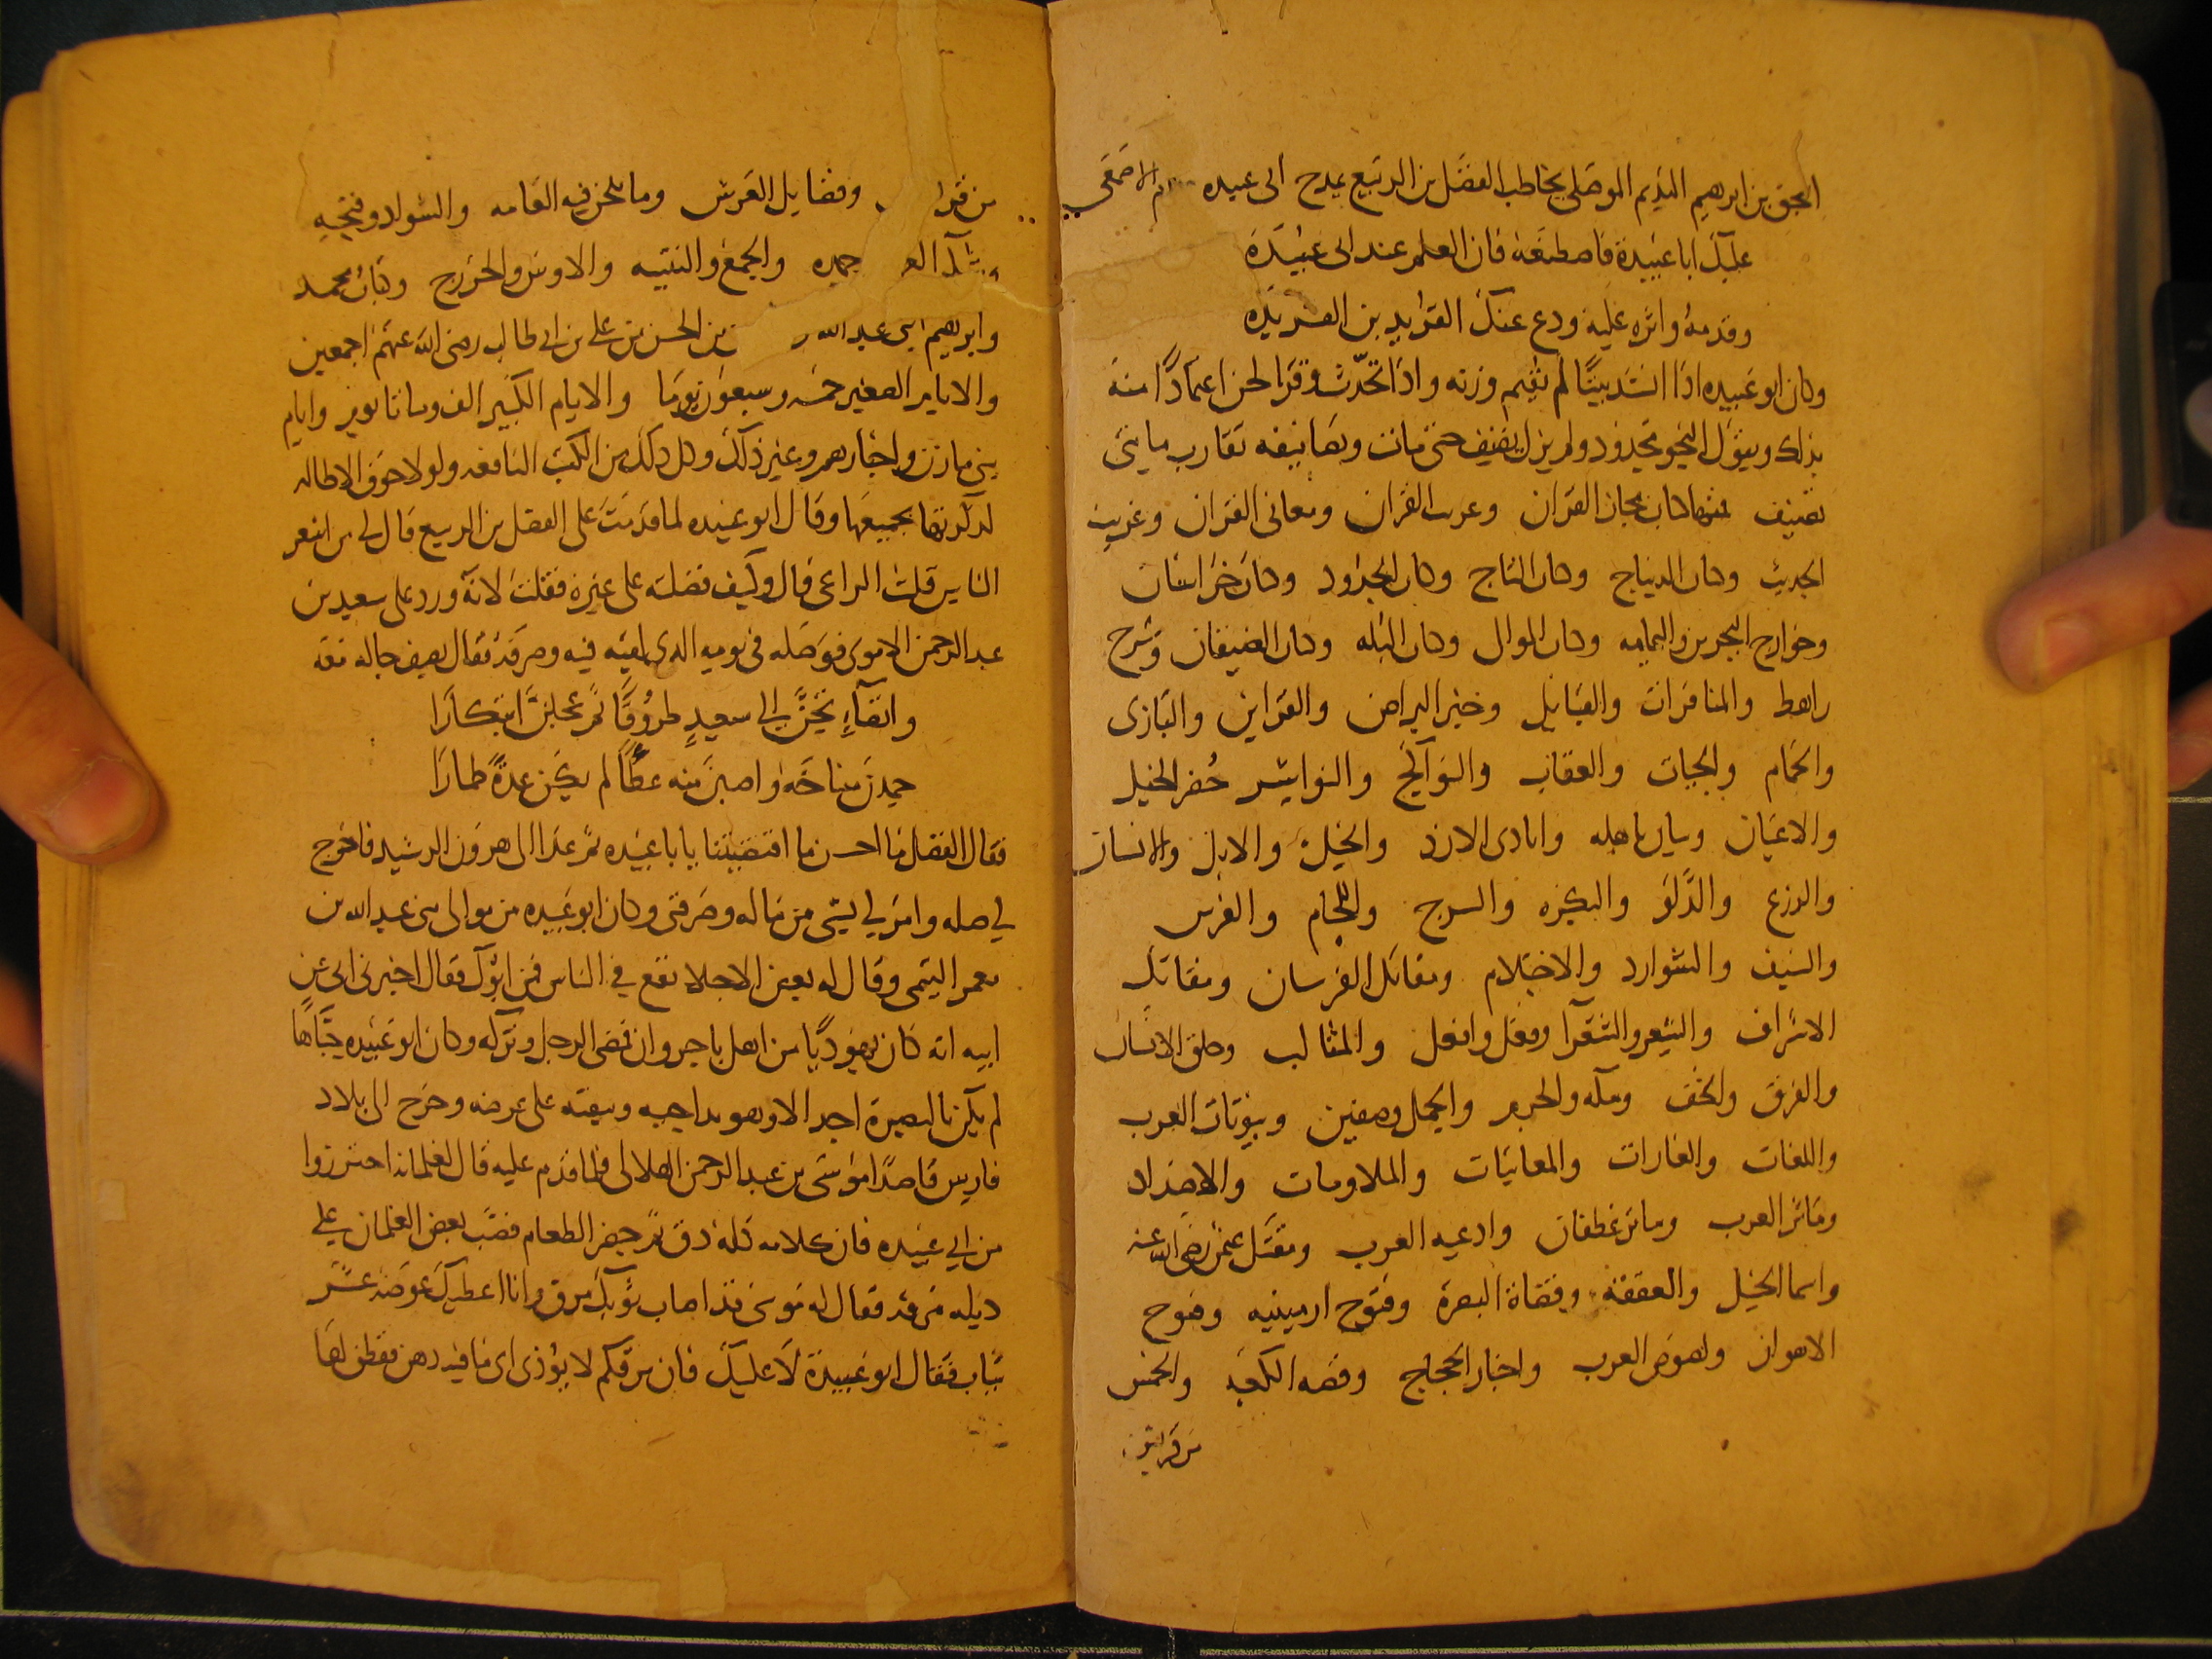 اسحق بن ابرهيم النديم الموصلي يخاطب الفضل بن الربيع يمدح ابى عبيده الاصمعي
عليك ابا عبيدة فاصطنعه فان العلم عند ابى عبيدة
وقدمه واثره عليه ودع عنك القريد بن القريده
وكان ابو عبيده اذا انشد بيتًا لم يقم وزنه واذا تحدّث وقرا لحن اعتمادًا منه
بذلك ويقول النحو محدود ولم يزل يصنف حتى مات وتصانيفه تقارب مايتى
تصنيف فمنها كتاب مجاز القران وغريب القران ومعانى القران وغريب
الحديث وكتاب الديباج وكتاب التاج وكتاب الحدود وكتاب خراسان
وخوارج البحرين واليمامه وكتاب الموالى وكتاب البله وكتاب الضيفان ومرج
راهط والمنافرات والقبايل وخبر البراض والقراين والبازى
والحمام والحيات والعقاب والنوايح والنواشر حُضر الخيل
والاعيان وبيان باهله وايادى الازد والخيل والابل والانسان
والزرع والدَّلو والبكره والسرج واللجام والفرس
والسيف والشوارد والاحتلام ومقاتل الفرسان ومقاتل
الاشراف والشعر والشعرآ وفعل وافعل والمثالب وخلق الانسان
والفرق والخف ومكه والحرم والجمل وصفين وبيوتات العرب
واللغات والغارات والمعاتبات والملاومات والاضداد
ومآثر العرب ومآثر غطفان وادعيه العرب ومقتل عثمن رضى الله عنه
واسما الخيل والعققة وقضاة البصرة وفتوح ارمينيه وفتوح
الاهواز ولصوص العرب واخبار الحجاج وقصه الكعبه والخمس
من قريش
من قريش وفضايل الفرش وما تلحن فيه العامه والسواد وفتحه
والجمع والتثنيه والاوس والخزرج وكتاب محمد
وابرهيم ابنى عبد الله بن الحسن بن على بن ابى طالب رضى الله عنهم اجمعين
والايام الصغير خمسه وسبعون يومًا والايام الكبير الف ومايتا يوم وايام
بنى مازن واخبارهم وغير ذلك وكل ذلك من الكتب النافعه ولولا خوف الاطاله
لذكرتها بجميعها وقال ابو عبيده لما قدمت على الفضل بن الربيع قال لى من اشعر
الناس قلت الراعى قال وكيف فضلته على غيره فقلت لانه ورد على سعيد بن
عبد الرحمن الاموى فوصله فى يومه الذى لقيه فيه وصرفه فقال يصف حاله معه
وانضآءٍ تحنّ الى سعيدٍ طروُقًا ثم عجلن ابتكارَا
حمدن مناخَه واصبن منه عطًا لم يكن عدةً ضمارَا
فقال الفضل ما احسن ما اقتضيتنا يا با عبيده ثم غدا الى هرون الرشيد فاخرج
لى صله وامر لى بشى من ماله وصرفنى وكان ابو عبيده من موالى بنى عبد الله بن
معمر التيمى وقال له بعض الاجلا تقع في الناس فمن ابوك فقال اخبرنى ابى عن
ابيه انه كان يهوديًا من اهل باجروان فمضى الرجل وتركه وكان ابو عبيده جبّاهًا
لم يكن بالبصرة احد الا وهو يداجيه ويتقيه على عرضه وخرج الى بلاد
فارس قاصدًا موسى بن عبد الرحمن الهلالى فلما قدم عليه قال لغلمانه احترزوا
من ابي عبيده فان كلامه كله دق ثم حضر الطعام فصَبّ بعض الغلمان على
ذيله مرقه فقال له موسى قد اصاب ثوبك مرق وانا اعطيك عوضه عشر
ثياب فقال ابو عبيدة لا عليك فان مرقكم لا يؤذى اى ما فيه دهن ففطن لها